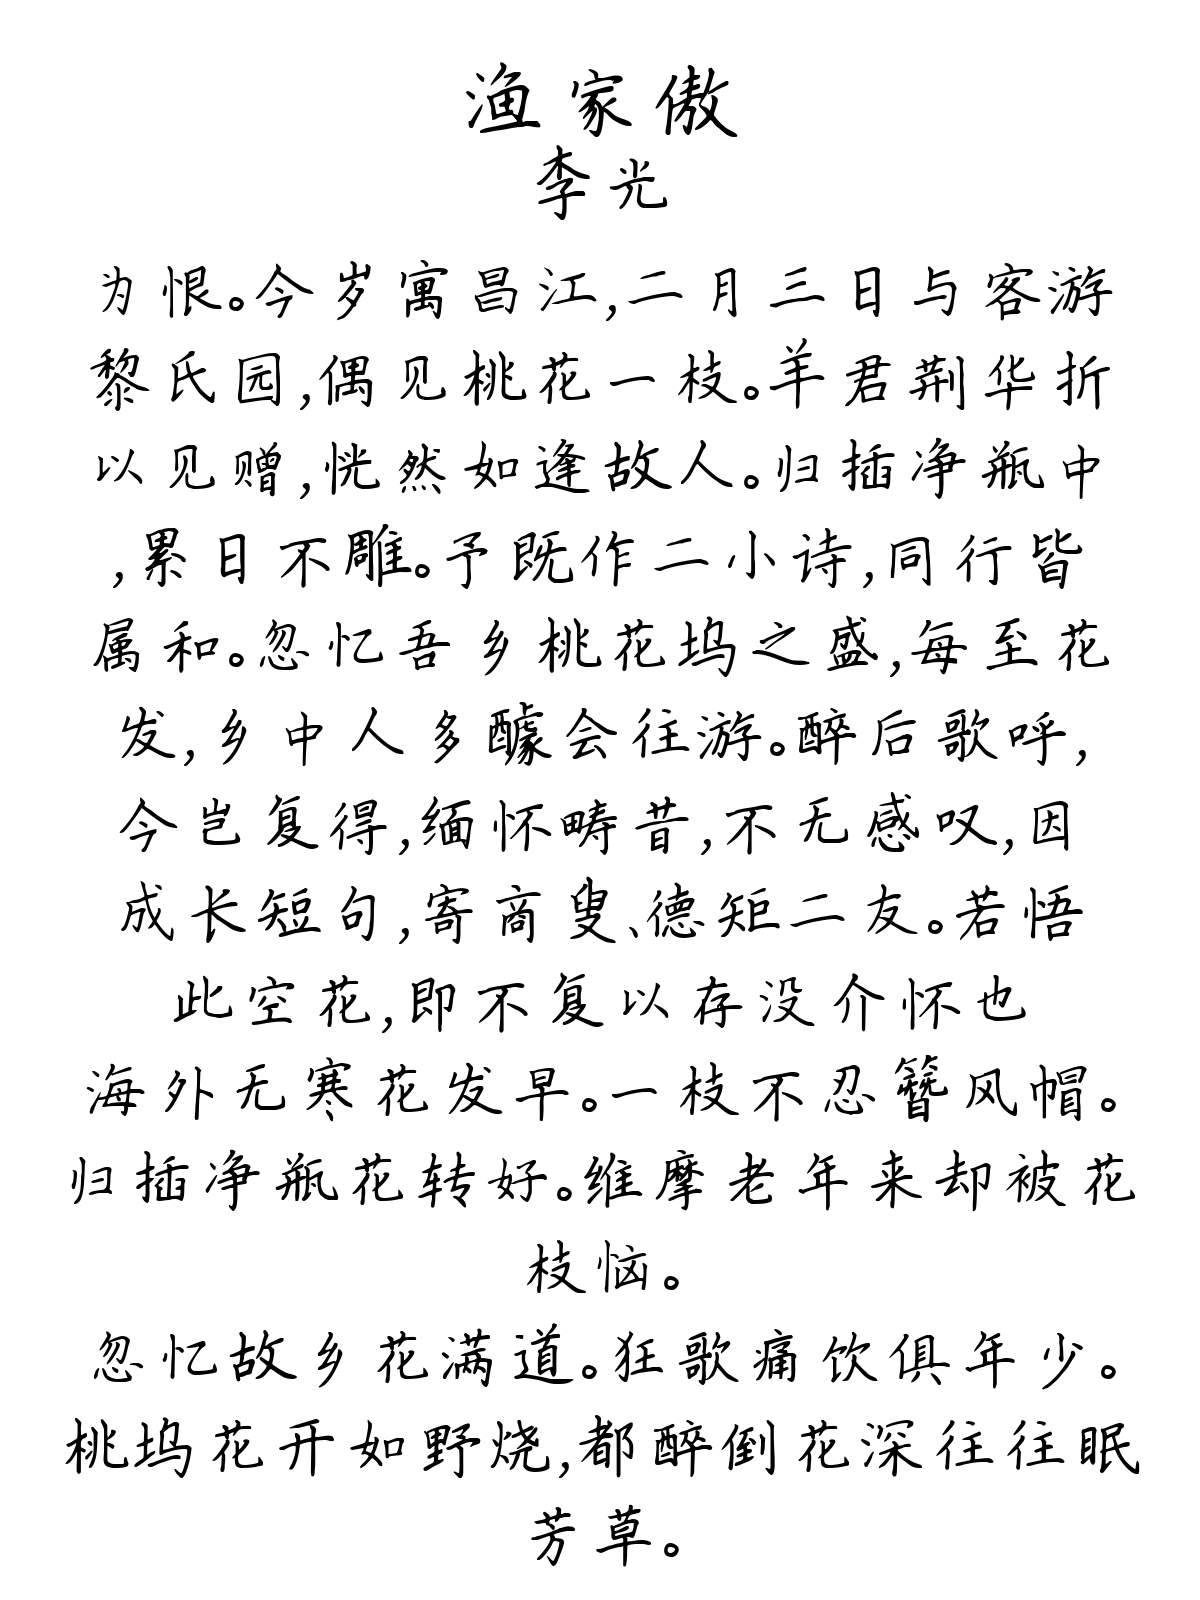 渔家傲
李光
为恨。今岁寓昌江,二月三日与客游
黎氏园,偶见桃花一枝。羊君荆华折
以见赠,恍然如逢故人。归插净瓶中
,累日不雕。予既作二小诗,同行皆
属和。忽忆吾乡桃花坞之盛,每至花
发,乡中人多醵会往游。醉后歌呼,
今岂复得,缅怀畴昔,不无感叹,因
成长短句,寄商叟、德矩二友。若悟
此空花,即不复以存没介怀也
海外无寒花发早。一枝不忍簪风帽。
归插净瓶花转好。维摩老年来却被花
枝恼。
忽忆故乡花满道。狂歌痛饮俱年少。
桃坞花开如野烧,都醉倒花深往往眠
芳草。